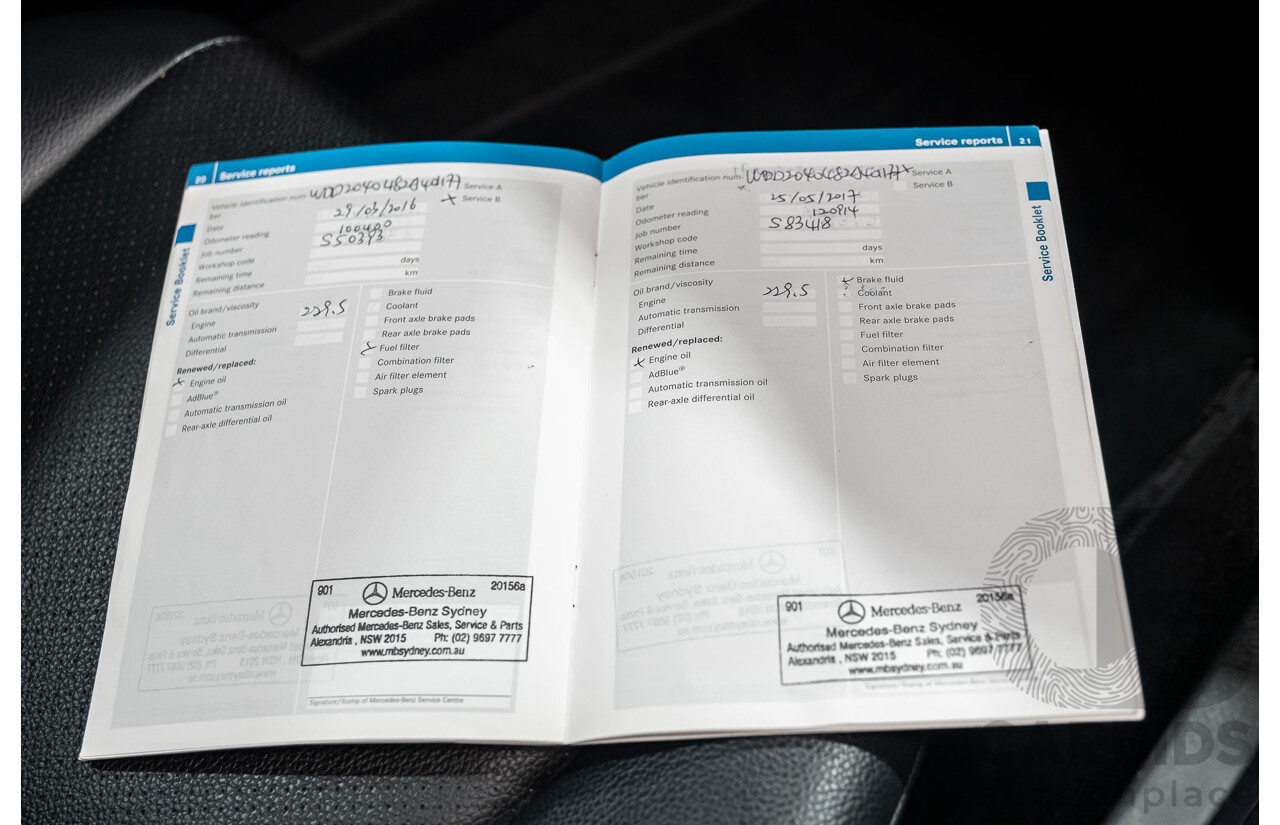 20 Service reports
Service Booklet
Vehicle identification num-
ber
WDD2040482A4d177
Service A
Service B
Date 29/03/2016
Odometer reading
Job number S50393
Workshop code
Remaining time days
Remaining distance km
Oil brand/viscosity
Engine 229.5
Automatic transmission
Differential
Renewed/replaced:
Engine oil
AdBlue®
Automatic transmission oil
Rear-axle differential oil
Brake fluid
Coolant
Front axle brake pads
Rear axle brake pads
Fuel filter
Combination filter
Air filter element
Spark plugs
901 Mercedes-Benz 20156a
Mercedes-Benz Sydney
Authorised Mercedes-Benz Sales, Service & Parts
Alexandria , NSW 2015 Ph: (02) 9697 7777
www.mbsydney.com.au
Signature/Stamp of Mercedes-Benz Service Centre
Service reports 21
Service Booklet
Vehicle identification num-
ber
Service A
Service B
Date 25/05/2017
Odometer reading 120914
Job number S83418
Workshop code
Remaining time days
Remaining distance km
Oil brand/viscosity
Engine 229.5
Automatic transmission
Differential
Renewed/replaced:
Engine oil
AdBlue®
Automatic transmission oil
Rear-axle differential oil
Brake fluid
Coolant
Front axle brake pads
Rear axle brake pads
Fuel filter
Combination filter
Air filter element
Spark plugs
901 Mercedes-Benz 20156a
Mercedes-Benz Sydney
Authorised Mercedes-Benz Sales, Service & Parts
Alexandria , NSW 2015 Ph: (02) 9697 7777
www.mbsydney.com.au